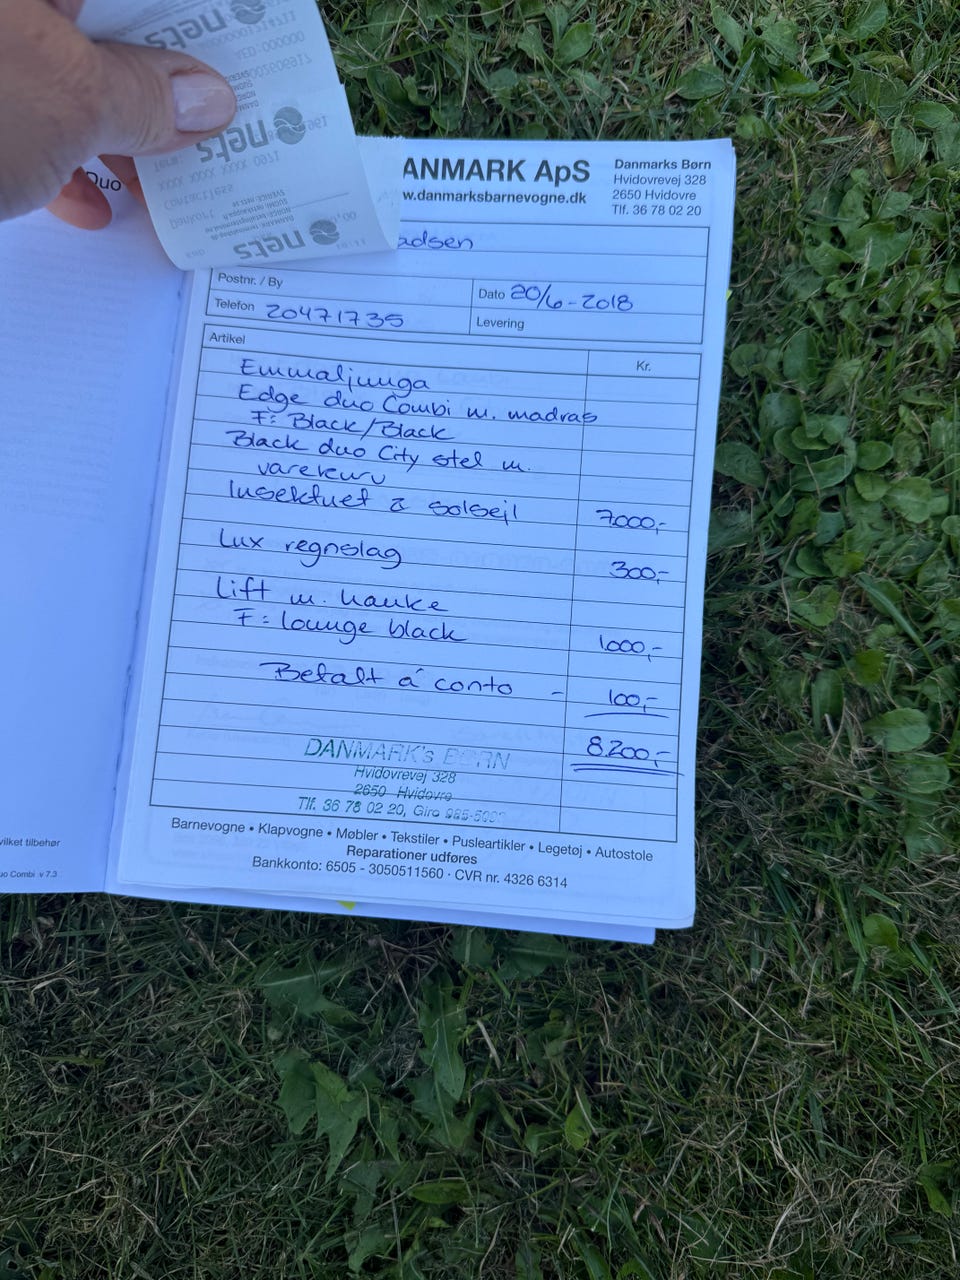 Duo
nets
nets
XXXX XXXX XXXX 0971
Contactless
Dankort
nets
ANMARK ApS
w.danmarksbarnevogne.dk
Danmarks Børn
Hvidovrevej 328
2650 Hvidovre
Tlf. 36 78 02 20
adsen
Postnr. / By
Dato 20/6-2018
Telefon 20471735
Levering
Artikel Kr.
Emmaljunga
Edge duo Combi m. madras
F: Black/Black
Black duo City stel m.
varekurv
Insektnet & solsejl 7.000,-
Lux regnslag 300,-
Lift m. hanke
F: lounge black 1.000,-
Betalt á conto - 100,-
8.200,-
DANMARK's BØRN
Hvidovrevej 328
2650 Hvidovre
Tlf. 36 78 02 20, Giro
Barnevogne • Klapvogne • Møbler • Tekstiler • Pusleartikler • Legetøj • Autostole
Reparationer udføres
Bankkonto: 6505 - 3050511560 · CVR nr. 4326 6314
vilket tilbehør
uo Combi v 7.3